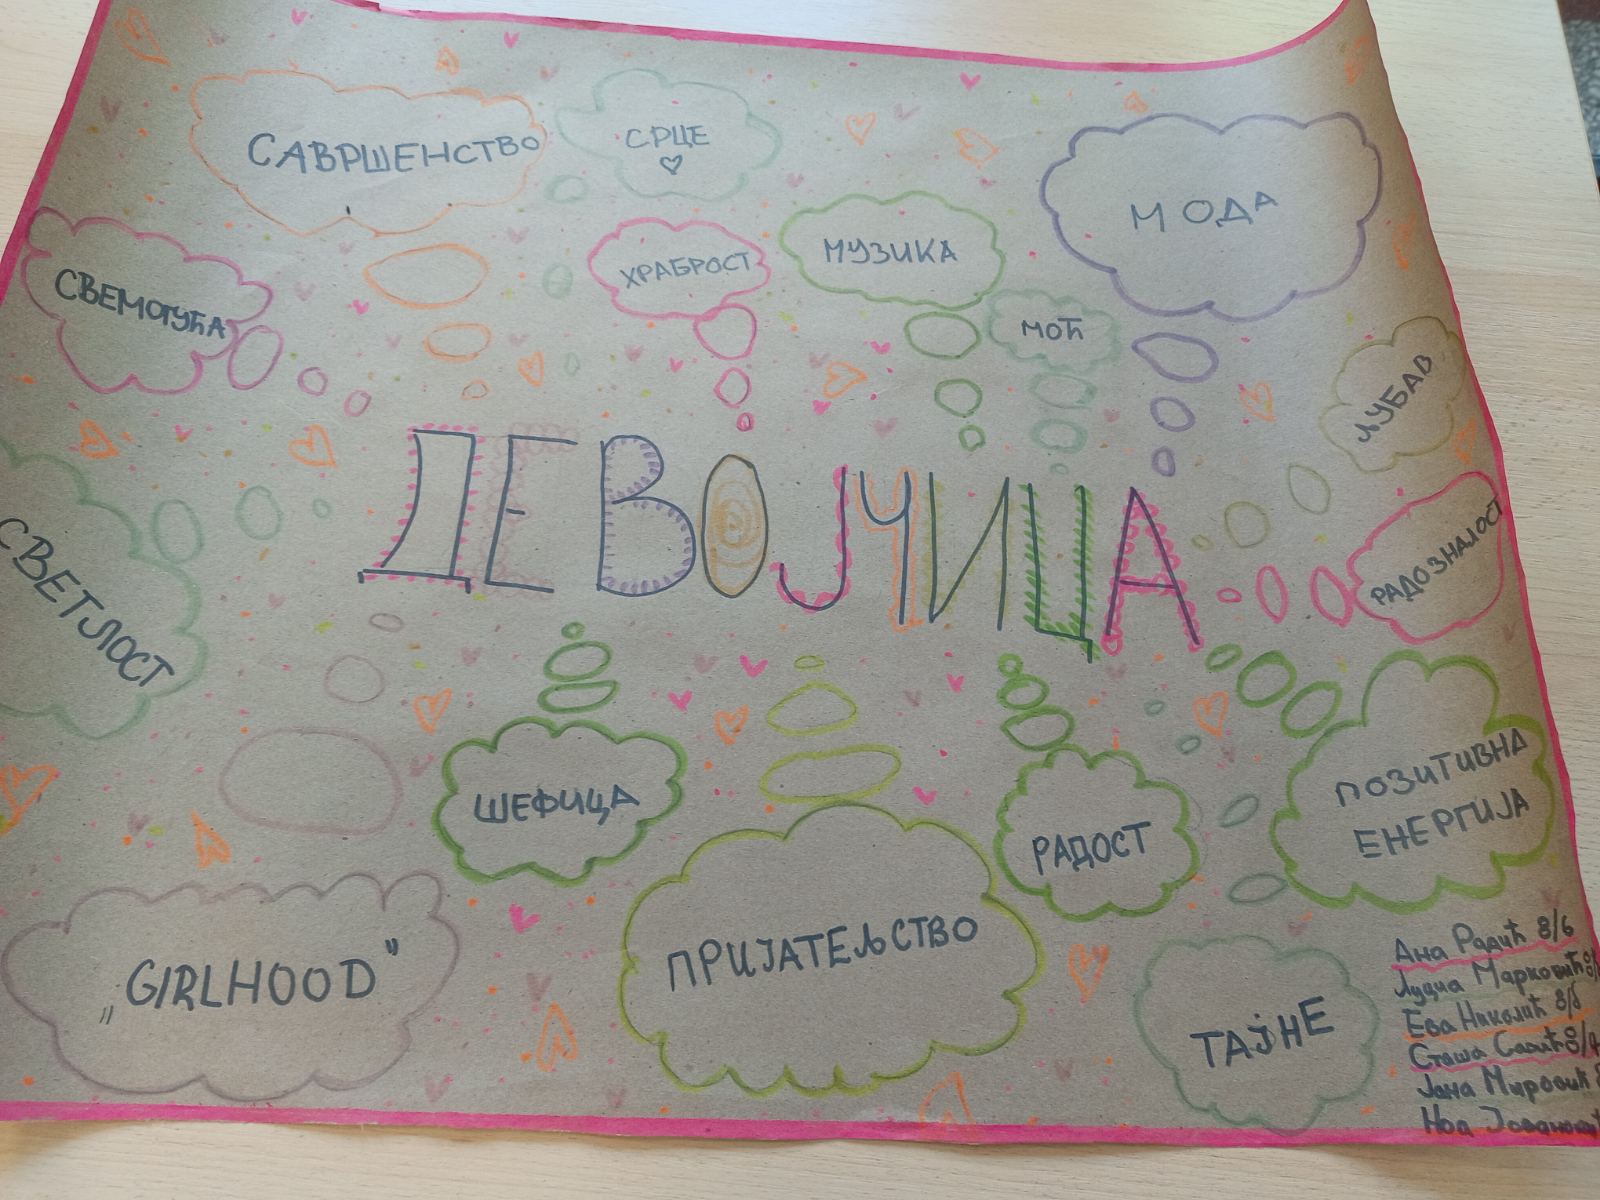 САВРШЕНСТВО
СРЦЕ
МОДА
СВЕМОГУЋА
ХРАБРОСТ
МУЗИКА
МОЋ
ЉУБАВ
ДЕВОЈЧИЦА
СВЕТЛОСТ
РАДОЗНАЛОСТ
ШЕФИЦА
РАДОСТ
ПОЗИТИВНА
ЕНЕРГИЈА
„GIRLHOOD"
ПРИЈАТЕЉСТВО
ТАЈНЕ
Ана Радић 8/6
Марковић
Ева Николић 8/6
Сташа
Јана
Ноа